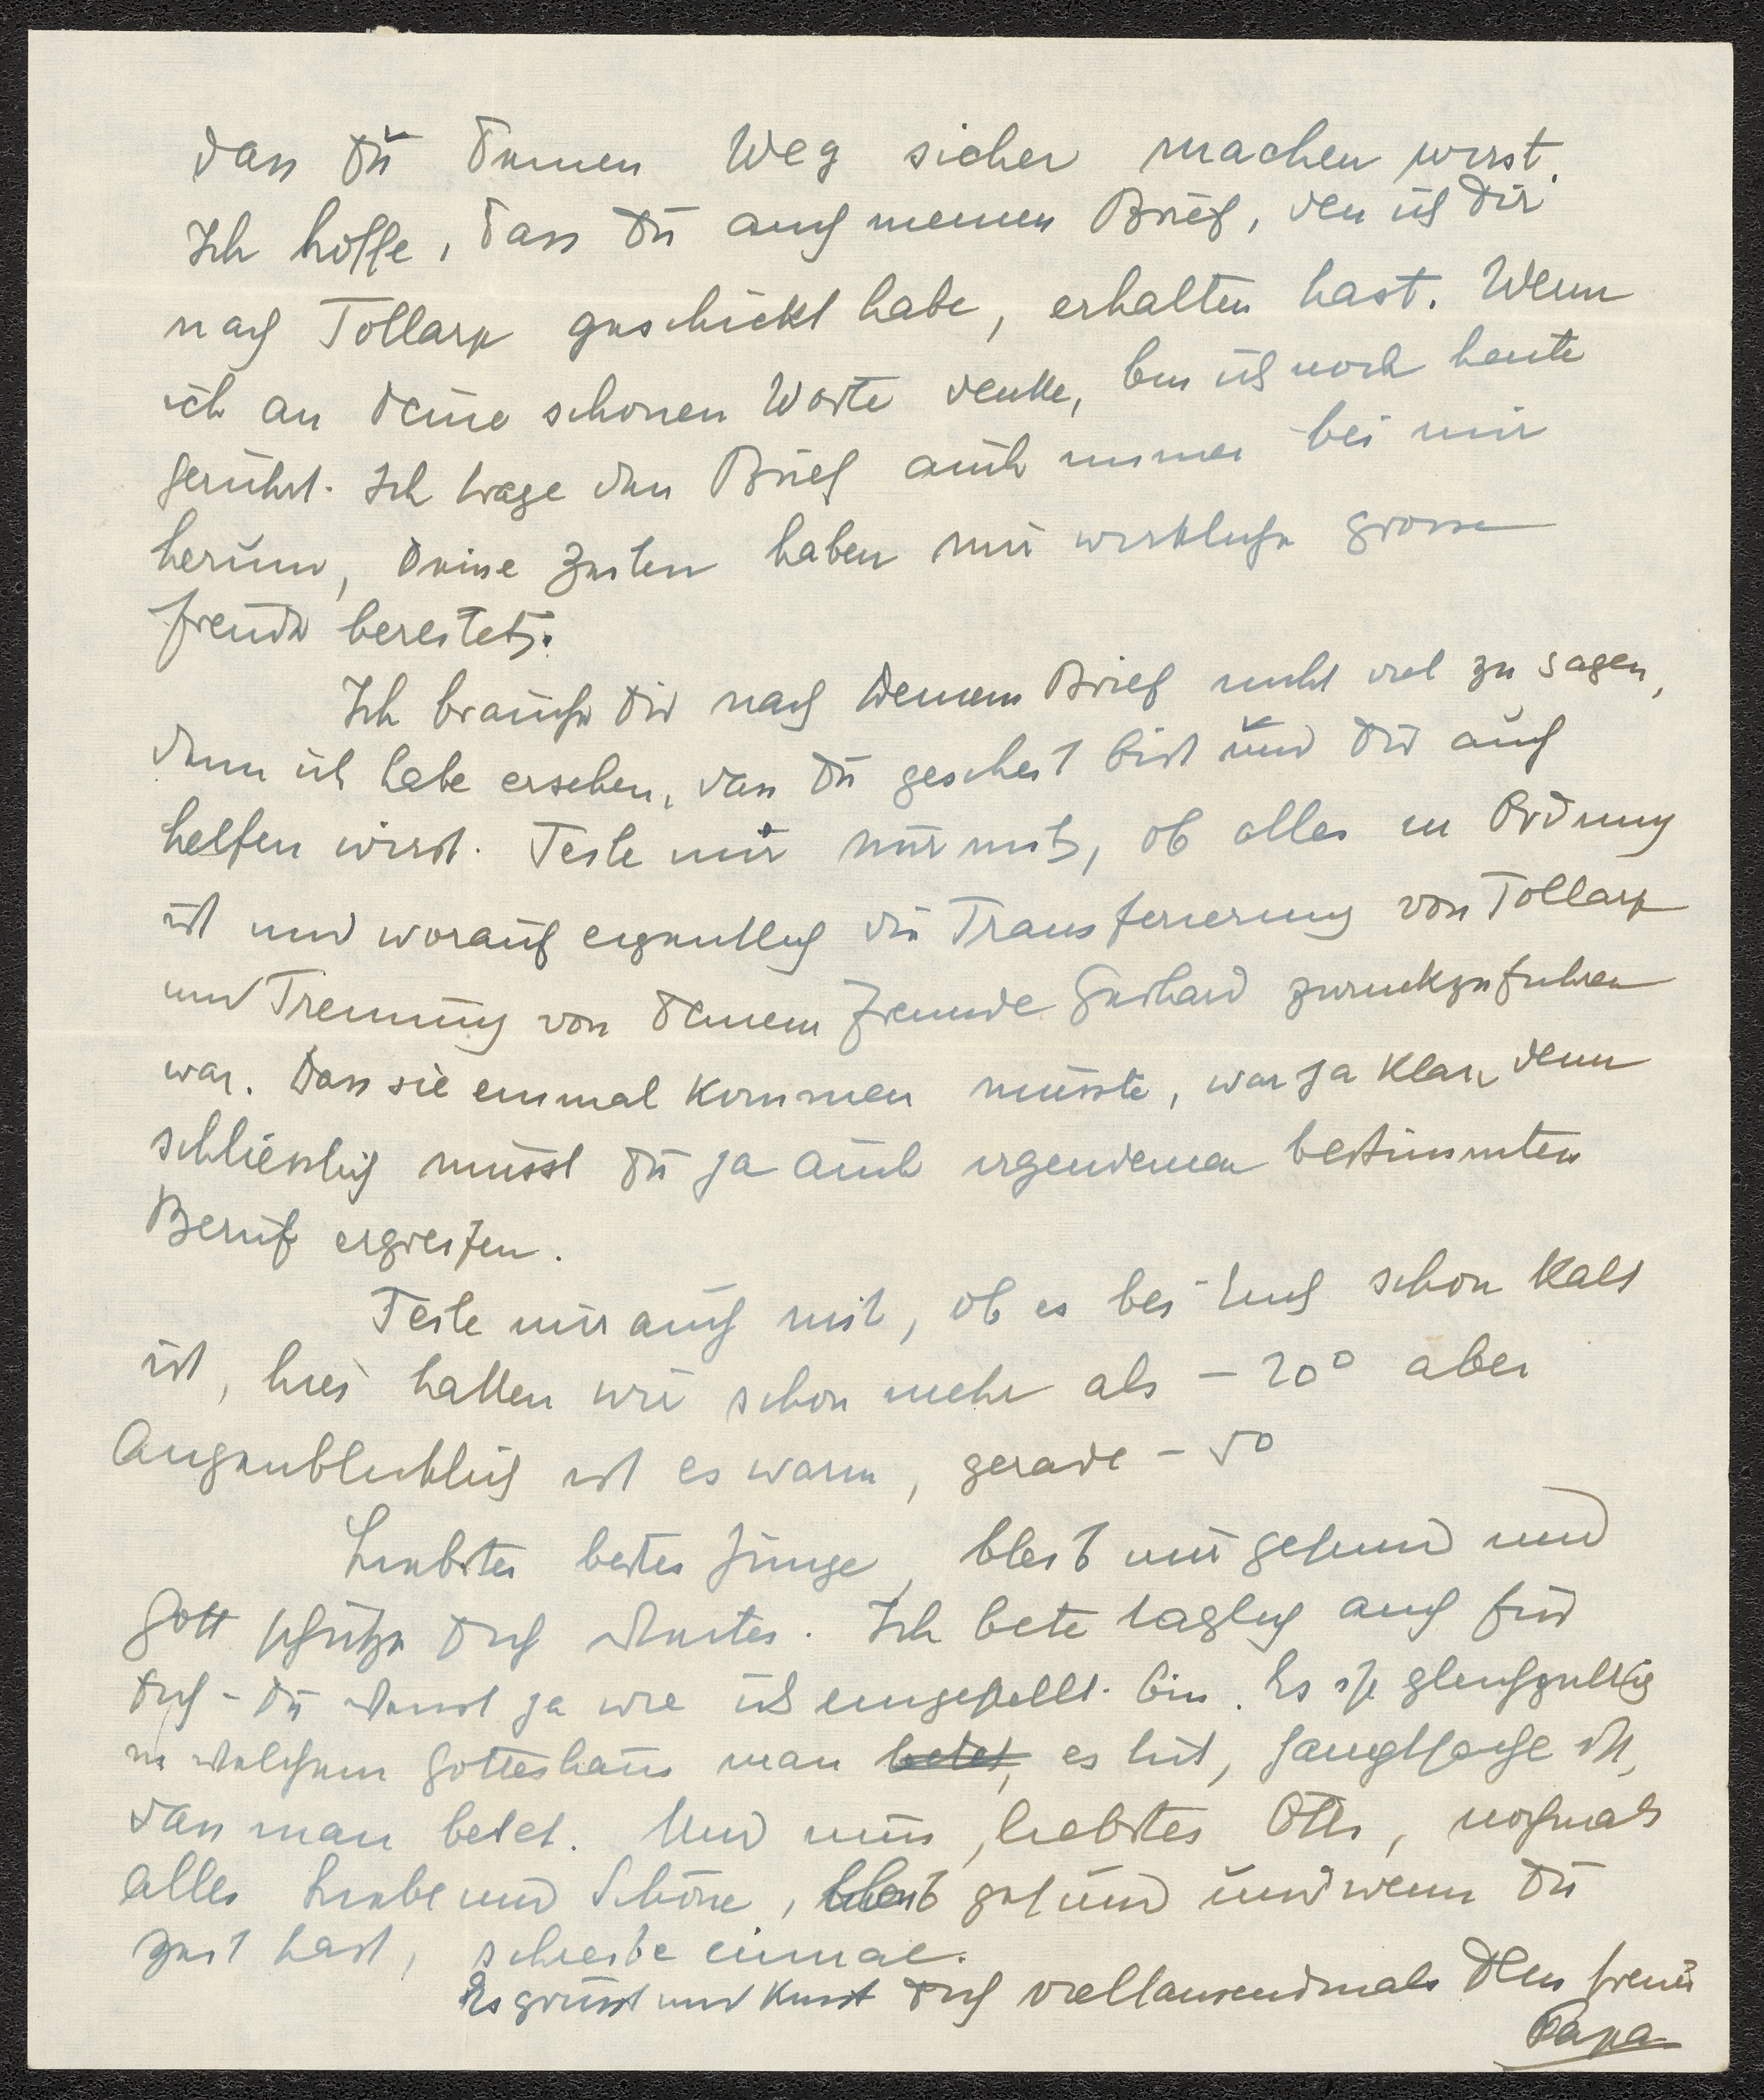 dass Du Deinen Weg sicher machen wirst.
Ich hoffe, dass Du auch meinen Brief, den ich Dir
nach Tollarp geschickt habe, erhalten hast. Wenn
ich an Deine schönen Worte denke, bin ich noch heute
gerührt. Ich trage den Brief auch immer bei mir
herum, Deine Zeilen haben mir wirkliche grosse
Freude bereitet.
Ich brauche Dir nach Deinem Brief nicht viel zu sagen,
denn ich habe ersehen, dass Du gescheit bist und Dir auch
helfen wirst. Teile mir nur mit, ob alles in Ordnung
ist und worauf eigentlich die Transferierung von Tollarp
und Trennung von Deinem Freunde Gerhard zurückzuführen
war. Dass sie einmal kommen müsste, war ja klar, denn
schliesslich musst Du ja auch irgendeinen bestimmten
Beruf ergreifen.
Teile mir auch mit, ob es bei Euch schon kalt
ist, hier hatten wir schon mehr als - 20° aber
Augenblicklich ist es warm, gerade - 5°
Liebster bester Junge, bleib mir gesund und
Gott schütze Dich weiter. Ich bete täglich auch für
Dich - Du weisst ja wie ich eingestellt bin. Es ist gleichgültig
in welchem Gotteshaus man betet, es tut, Hauptsache ist,
dass man betet. Und nun, liebstes Otti, nochmals
alles Liebe und Schöne, bleib gesund und wenn Du
Zeit hast, schreibe einmal.
Es grüsst und küsst Dich vieltausendmals Dein treuer
Papa